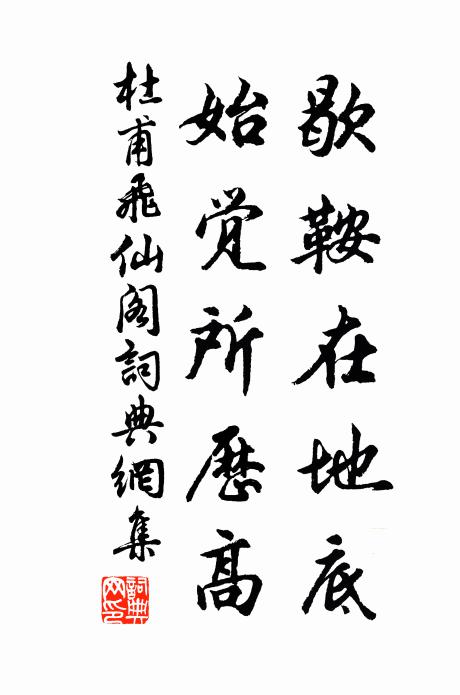 歇鞍在地底
始覚所歷高
杜甫飛仙阁詞典網集
詞典网印